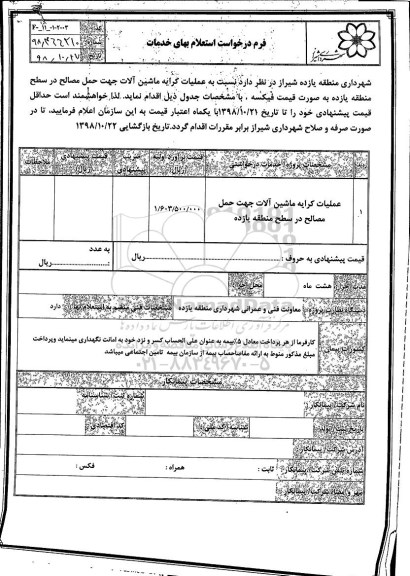 فرم درخواست استعلام بهای خدمات
۹۸/۱۰/۲۷
شهرداری منطقه یازده شیراز در نظر دارد نسبت به عملیات کرایه ماشین آلات جهت حمل مصالح در سطح
منطقه یازده به صورت قیمت فیکسه ، با مشخصات جدول ذیل اقدام نماید. لذا خواهشمند است حداقل
قیمت پیشنهادی خود را تا تاریخ ۱۳۹۸/۱۰/۲۱با یکماه اعتبار قیمت به این سازمان اعلام فرمایید، تا در
صورت صرفه و صلاح شهرداری شیراز برابر مقررات اقدام گردد.تاریخ بازگشایی ۱۳۹۸/۱۰/۲۲
مشخصات پروژه/ خدمات درخواستی
قیمت برآورد اولیه (ریال)
ضریب پیشنهادی
قیمت پیشنهادی (ریال)
ملاحظات
۱
عملیات کرایه ماشین آلات جهت حمل
مصالح در سطح منطقه یازده
۱/۶۰۳/۵۰۰/۰۰۰
قیمت پیشنهادی به حروف : ................ریال
به عدد
:................ریال
هشت ماه
محل اجرا
معاونت فنی و عمرانی شهرداری منطقه یازده
دارد
کارفرما از هر پرداخت معادل ۵٪بیمه به عنوان علی الحساب کسر و نزد خود به امانت نگهداری مینماید وپرداخت
مبلغ مذکور منوط به ارائه مفاصاحساب بیمه از سازمان بیمه تامین اجتماعی میباشد
۰۲۱-۸۸۳۴۹۶۷۰-۵
مشخصات پیمانکار
نام شرکت/ پیمانکار :
کد اقتصادی :
آدرس شرکت/ پیمانکار :
ثابت :
همراه :
فکس :
مهر و امضا شرکت/ پیمانکار :